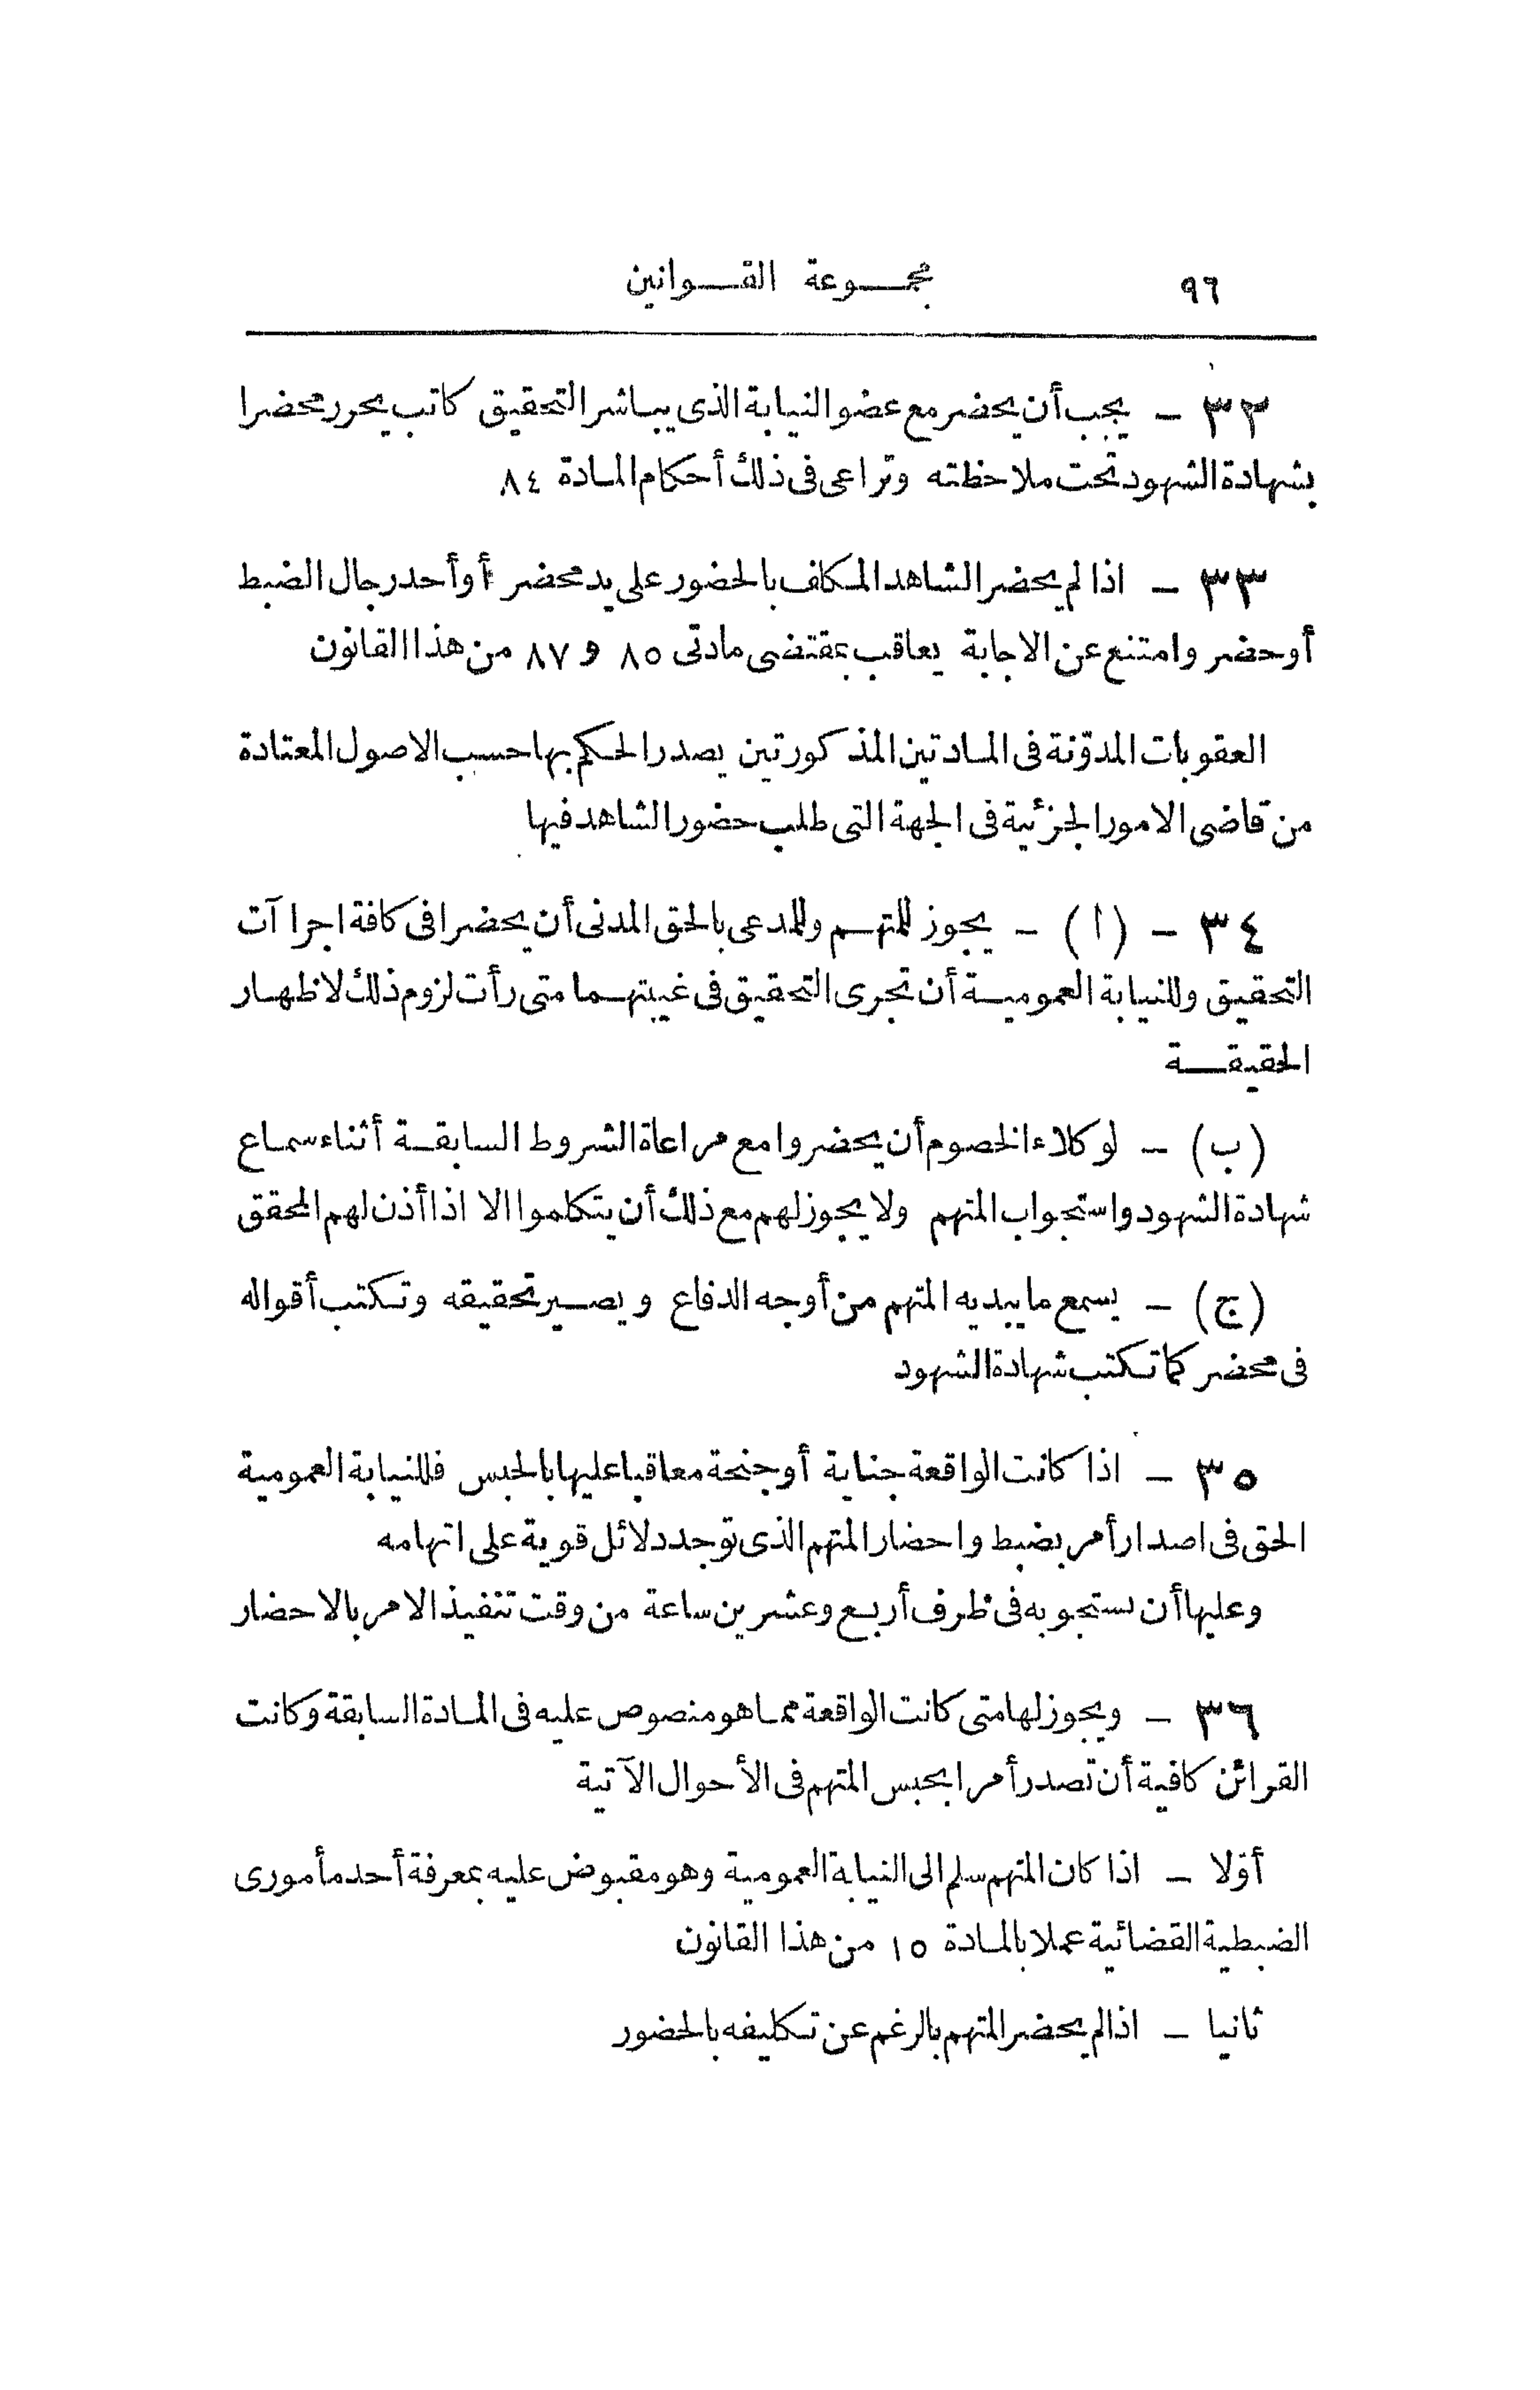 ٩٦
مجموعة القوانين
٣٢ – يجب أن يحضر مع عضو النيابة الذى يباشر التحقيق كاتب يحرر محضرا
بشهادة الشهود تحت ملاحظته وتراعى فى ذلك أحكام المادة ٨٤
٣٣ – اذا لم يحضر الشاهد المكلف بالحضور على يد محضر أو أحد رجال الضبط
أو حضر وامتنع عن الاجابة يعاقب بمقتضى مادتى ٨٥ و ٨٧ من هذا القانون
العقوبات المدوّنة فى المادتين المذكورتين يصدر الحكم بها حسب الاصول المعتادة
من قاضى الامور الجزئية فى الجهة التى طلب حضور الشاهد فيها
٣٤ – (ا) – يجوز للمتهم وللمدعى بالحق المدنى أن يحضرا فى كافة اجراآت
التحقيق وللنيابة العمومية أن تجرى التحقيق فى غيبتهما متى رأت لزوم ذلك لاظهار
الحقيقة
(ب) – لوكلاء الخصوم أن يحضروا مع مراعاة الشروط السابقة أثناء سماع
شهادة الشهود واستجواب المتهم ولا يجوز لهم مع ذلك أن يتكلموا الا اذا أذن لهم المحقق
(ج) – يسمع ما يبديه المتهم من أوجه الدفاع ويصير تحقيقه وتكتب أقواله
فى محضر كما تكتب شهادة الشهود
٣٥ – اذا كانت الواقعة جناية أو جنحة معاقبا عليها بالحبس فللنيابة العمومية
الحق فى اصدار أمر بضبط واحضار المتهم الذى توجد دلائل قوية على اتهامه
وعليها أن تستجوبه فى ظرف أربع وعشرين ساعة من وقت تنفيذ الامر بالاحضار
٣٦ – ويجوز لها متى كانت الواقعة مما هو منصوص عليه فى المادة السابقة وكانت
القرائن كافية أن تصدر أمرا بحبس المتهم فى الأحوال الآتية
أوّلا – اذا كان المتهم سلم الى النيابة العمومية وهو مقبوض عليه بمعرفة أحد مأمورى
الضبطية القضائية عملا بالمادة ١٥ من هذا القانون
ثانيا – اذا لم يحضر المتهم بالرغم عن تكليفه بالحضور